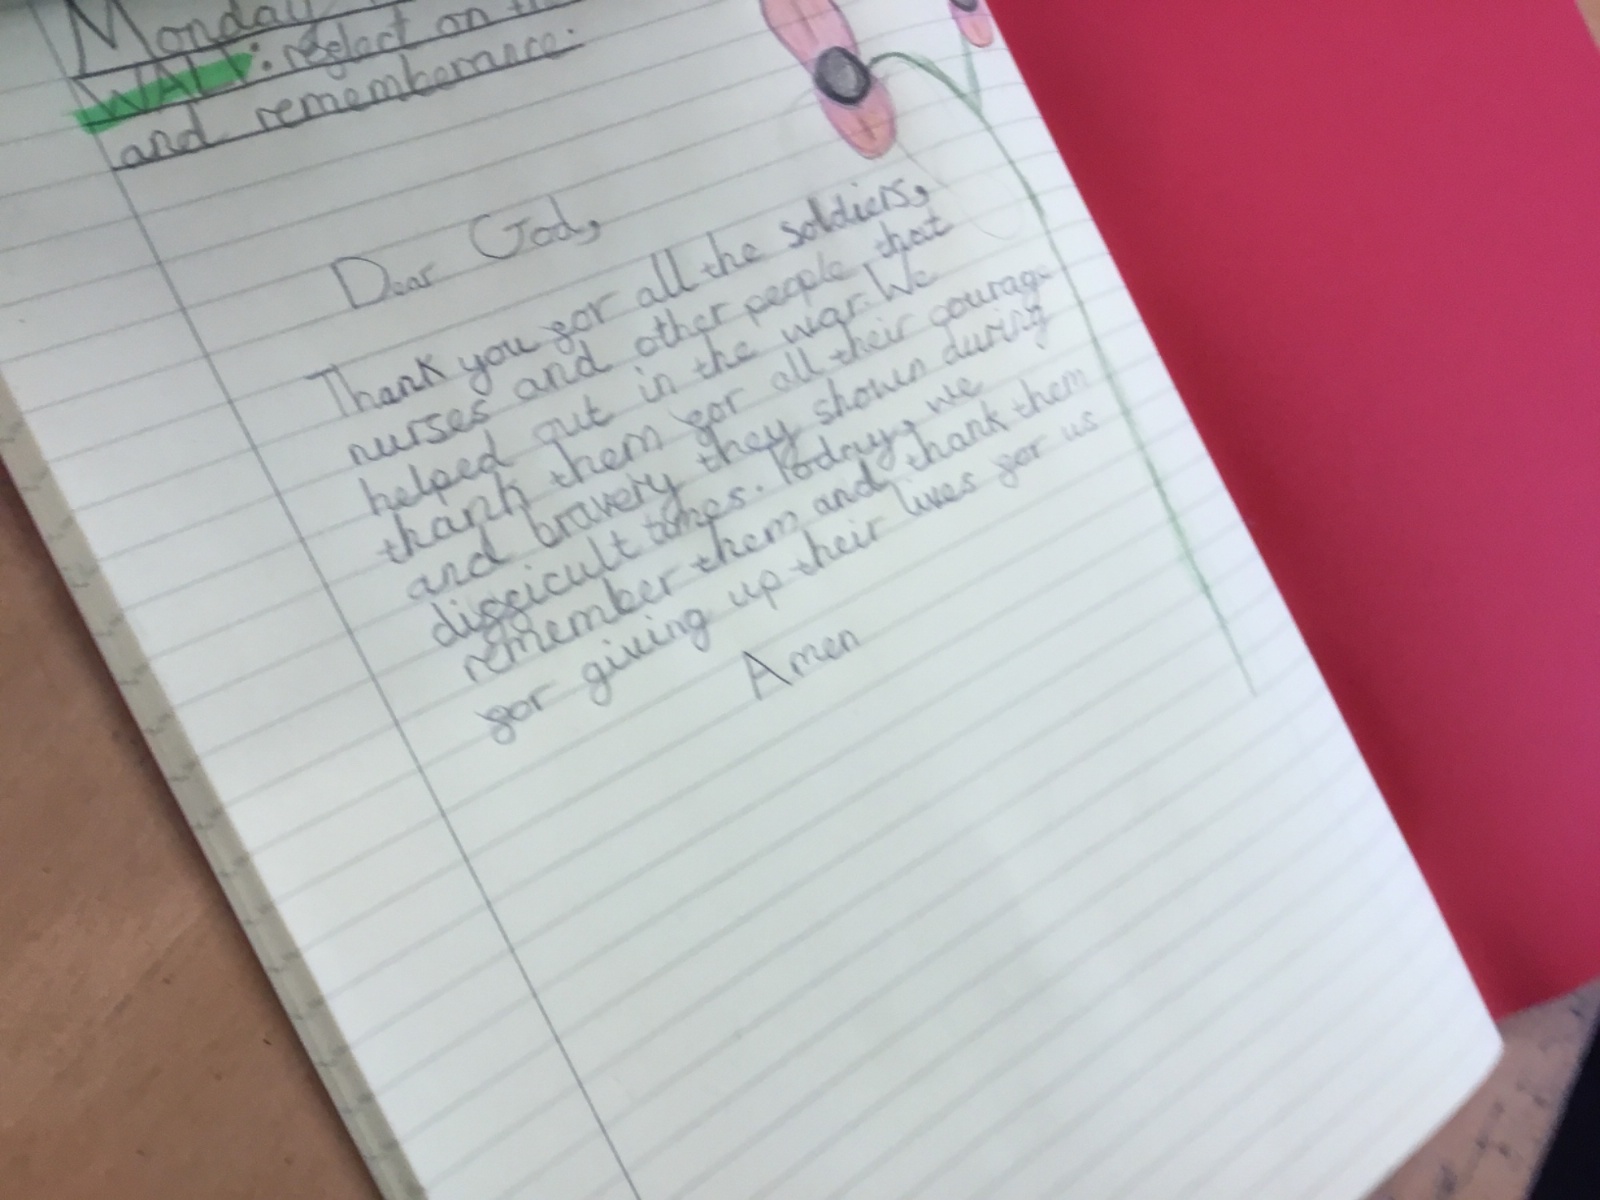 Monday
WALT: reflect on
and rememberance.
Dear God,
Thank you for all the soldiers,
nurses and other people that
helped out in the war. We
thank them for all their courage
and bravery they shown during
difficult times. Today, we
remember them and thank them
for giving up their lives for us
Amen